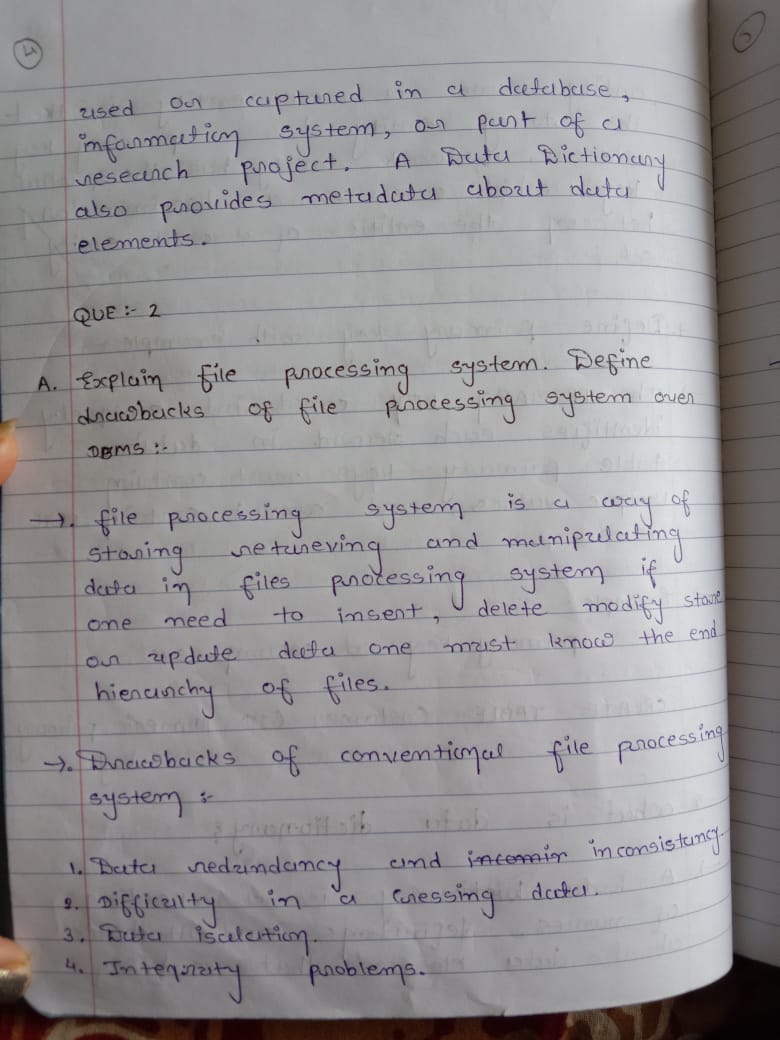 4
5
used or captured in a database,
information system, or part of a
research project. A Data Dictionary
also provides metadata about data
elements.
QUE :- 2
A. Explain file processing system. Define
drawbacks of file processing system over
DBMS :-
→. file processing system is a way of
storing retrieving and manipulating
data in files processing system if
one need to insert, delete modify store
or update data one must know the end
hierarchy of files.
→. Drawbacks of conventional file processing
system :-
1. Data redundancy and inconsistancy.
2. Difficulty in a ccessing data.
3. Data isolation.
4. Integrity problems.